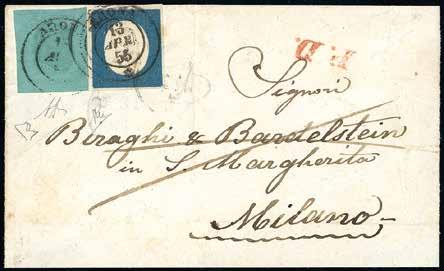 13
APR
55
P.D.
Signori
Biraghi & Bardelstein
in S. Margherita
Milano